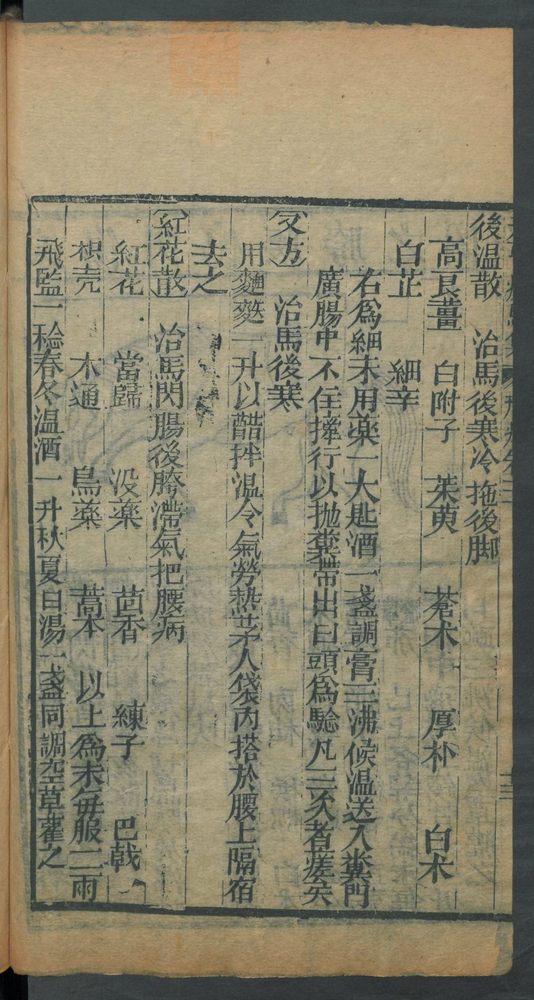 後温散　治馬後寒冷拖後脚
高良薑　白附子　茱萸　蒼朮　厚朴　白朮
白芷　細辛
右爲細末用藥一大匙酒一盞調膏三沸候温送入糞門
廣腸中不住撁行以拋糞帶出曰頭爲驗凡三次者瘥矣
又方　治馬後寒
用麵麩一升以醋拌温令氣勞熱芽人袋內搭於腰上隔宿
去之
紅花散　治馬閃腸後胯滯氣把腰病
紅花　當歸　沒藥　茴香　練子　巴戟
枳壳　木通　烏藥　藁本　以上爲末每服二兩
飛監一稔春冬温酒一升秋夏白湯一盞同調空草灌之